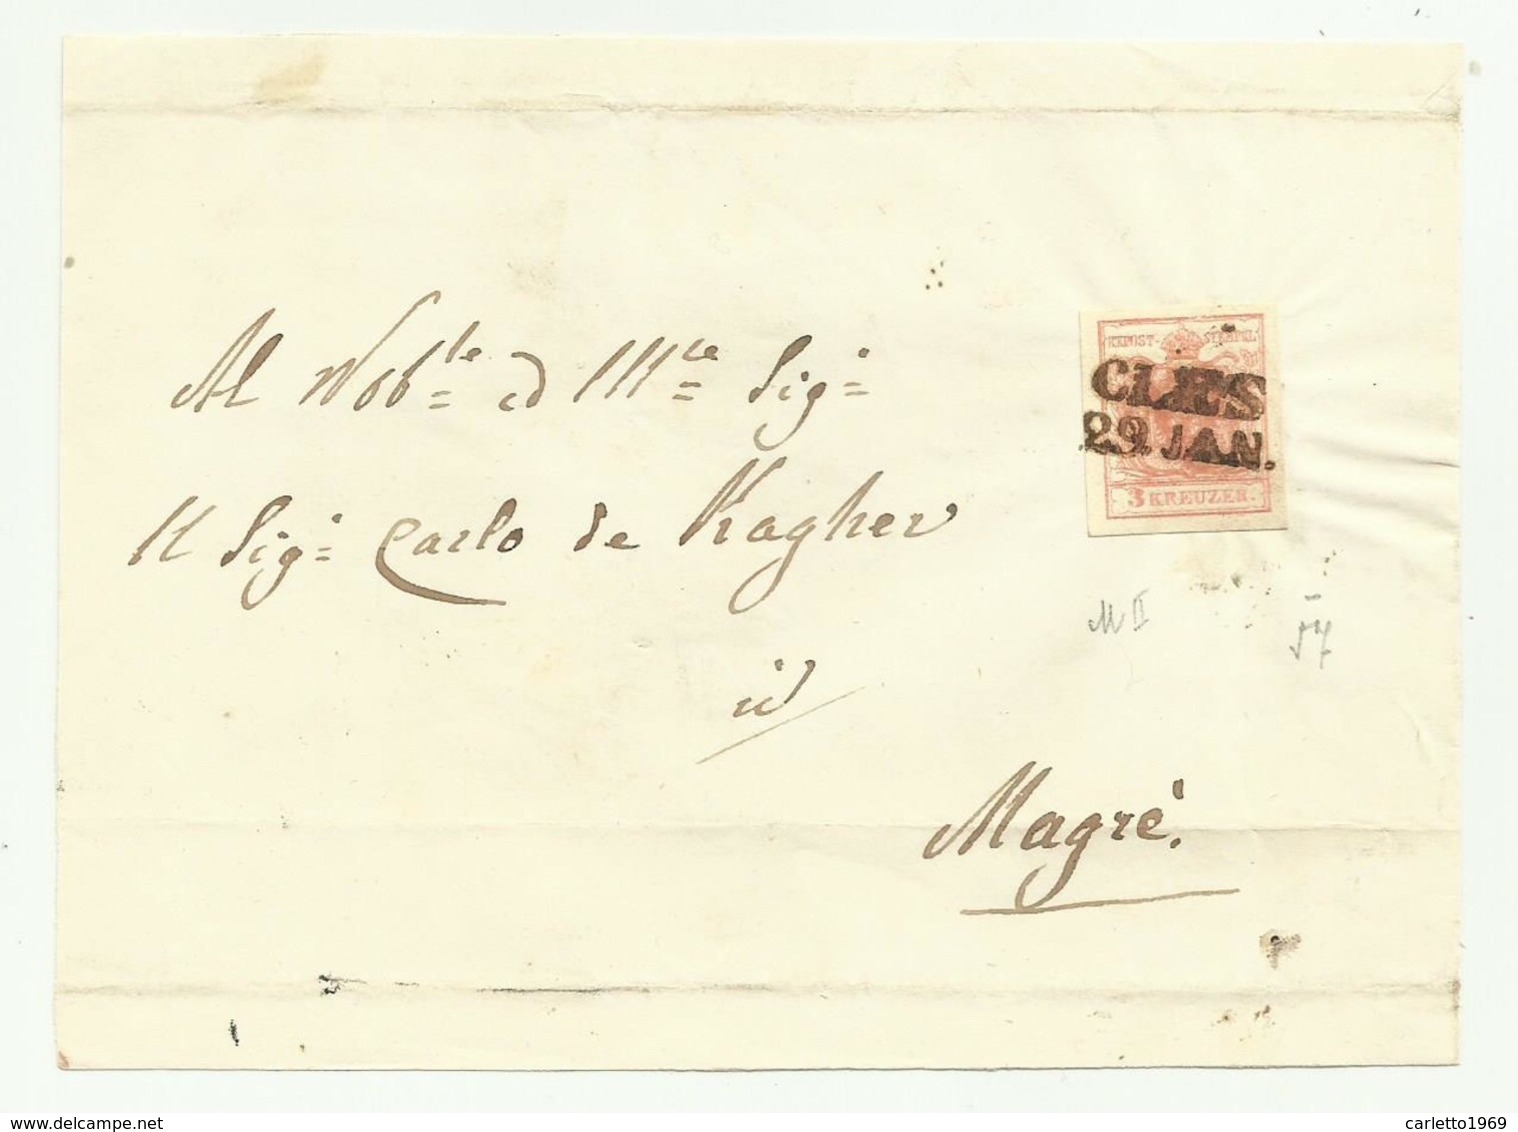 Al Nob:le ed Ill:ce Sig:
Il Sig: Carlo de Kagher
in
Magré.
KKPOST-STEMPEL
CLES
29. JAN.
3 KREUZER.
M II
57
www.delcampe.net
carletto1969